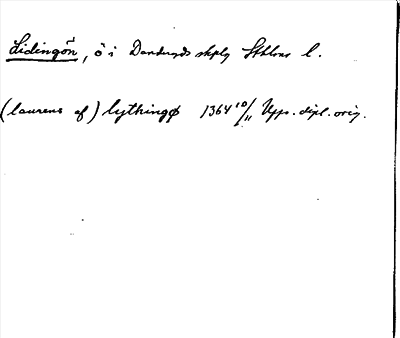 Lidingön, ö i Danderyds skplg Sthlms l.
(laurens af) lythingø 1364 10/11 Upps. dipl. orig.